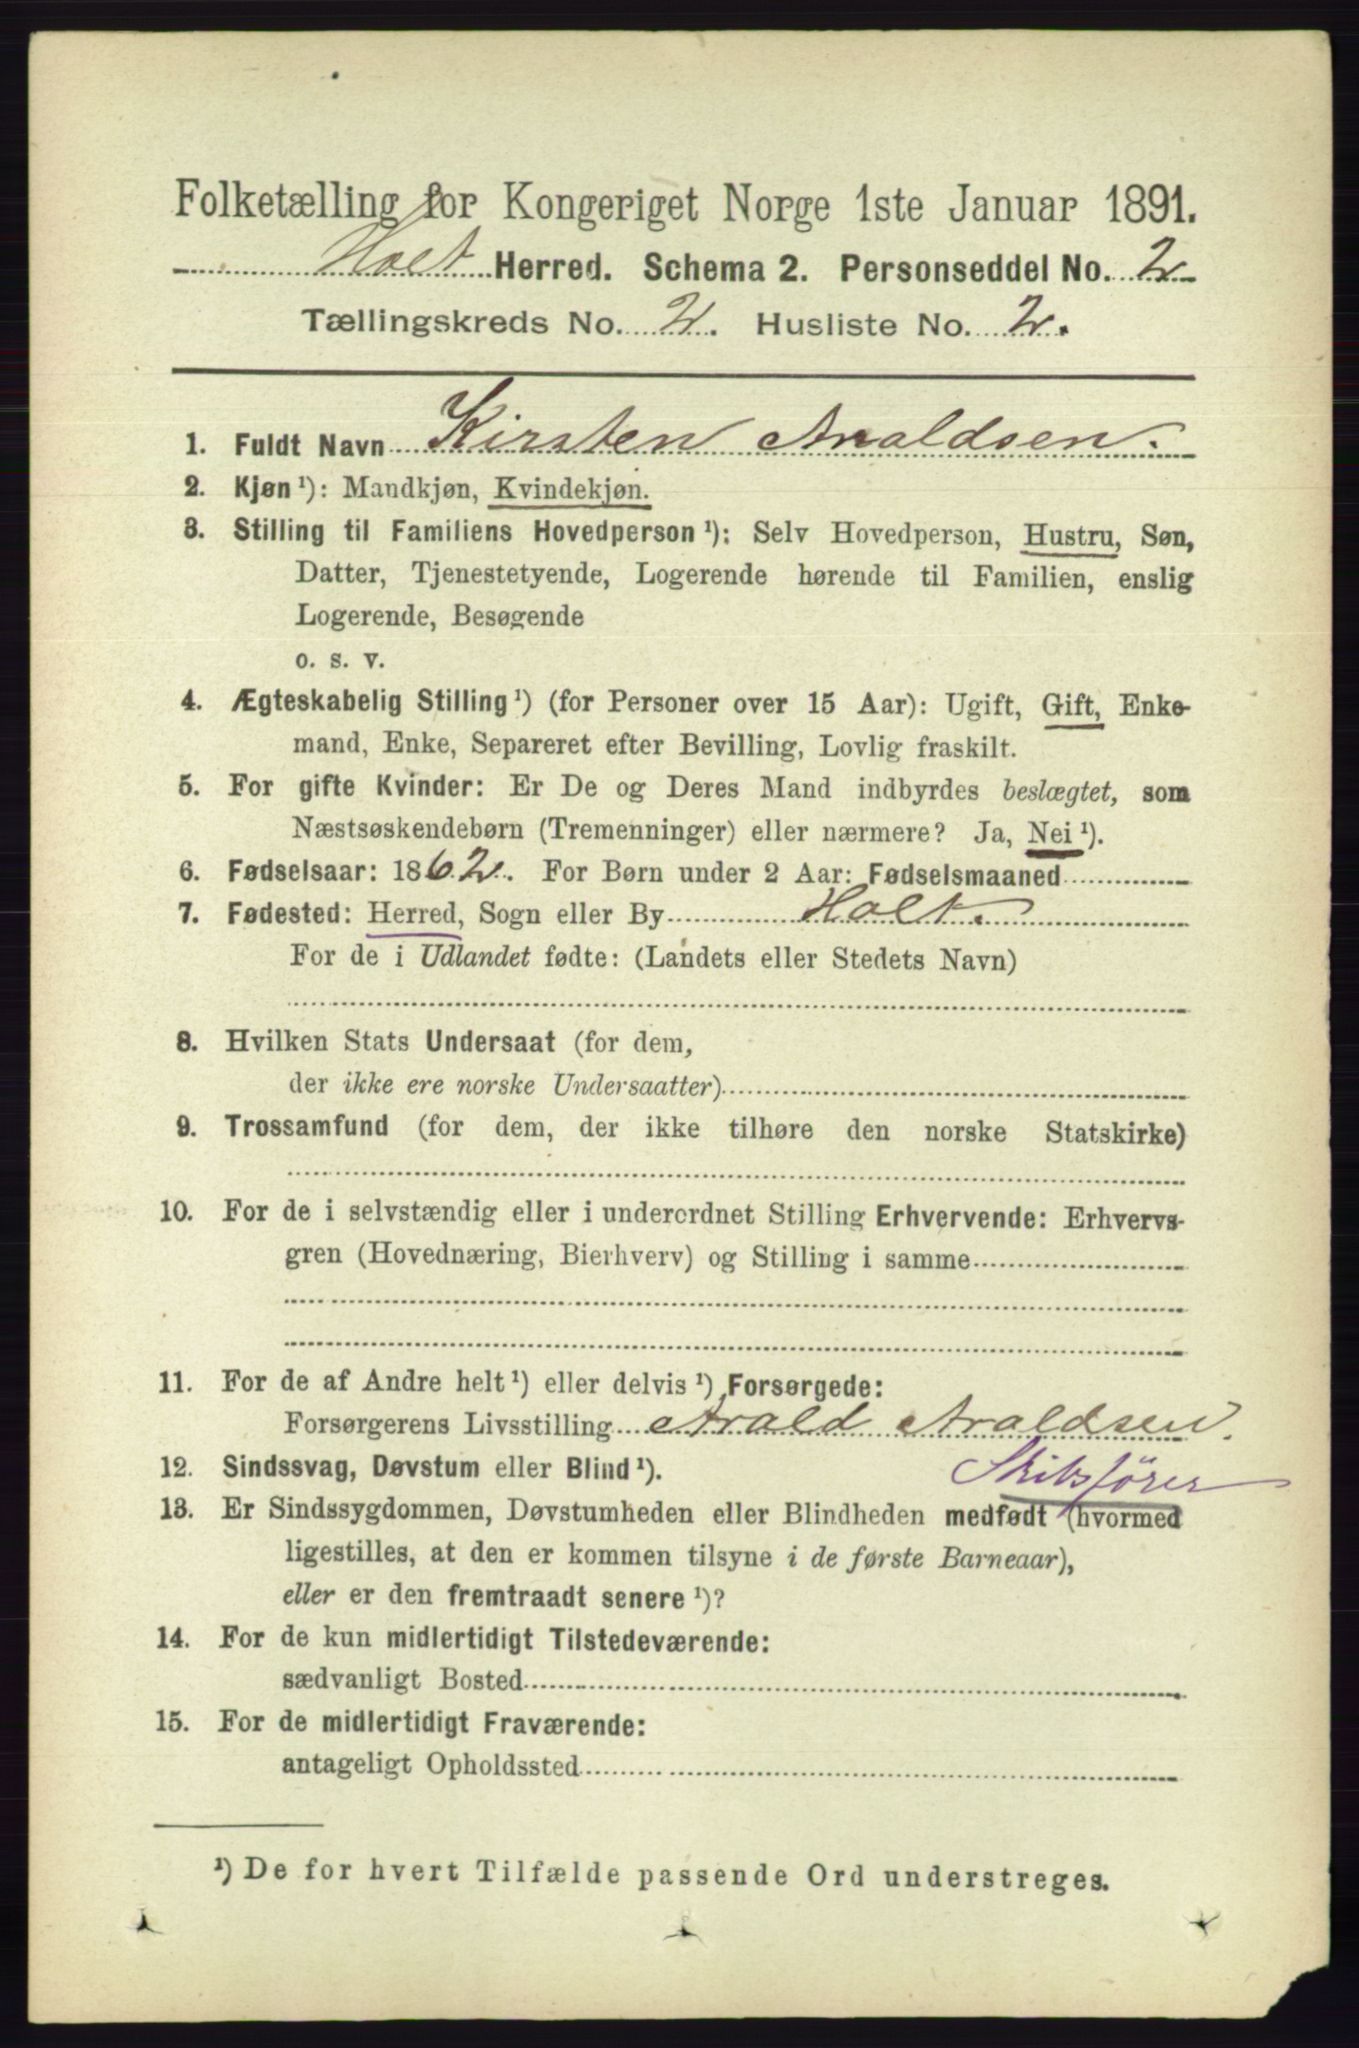 Folketælling for Kongeriget Norge 1ste Januar 1891.
Holt Herred. Schema 2. Personseddel No. 2
Tællingskreds No. 2. Husliste No. 2.
1. Fuldt Navn Kirsten Araldsen.
2. Kjøn ¹): Mandkjøn, Kvindekjøn.
3. Stilling til Familiens Hovedperson ¹): Selv Hovedperson, Hustru, Søn,
Datter, Tjenestetyende, Logerende hørende til Familien, enslig
Logerende, Besøgende
o. s. v.
4. Ægteskabelig Stilling ¹) (for Personer over 15 Aar): Ugift, Gift, Enke-
mand, Enke, Separeret efter Bevilling, Lovlig fraskilt.
5. For gifte Kvinder: Er De og Deres Mand indbyrdes beslægtet, som
Næstsøskendebørn (Tremenninger) eller nærmere? Ja, Nei ¹).
6. Fødselsaar: 1862. For Børn under 2 Aar: Fødselsmaaned
7. Fødested: Herred, Sogn eller By Holt.
For de i Udlandet fødte: (Landets eller Stedets Navn)
8. Hvilken Stats Undersaat (for dem,
der ikke ere norske Undersaatter)
9. Trossamfund (for dem, der ikke tilhøre den norske Statskirke)
10. For de i selvstændig eller i underordnet Stilling Erhvervende: Erhvervs-
gren (Hovednæring, Bierhverv) og Stilling i samme
11. For de af Andre helt ¹) eller delvis ¹) Forsørgede:
Forsørgerens Livsstilling Arald Araldsen.
Skibsfører
12. Sindssvag, Døvstum eller Blind ¹).
13. Er Sindssygdommen, Døvstumheden eller Blindheden medfødt (hvormed
ligestilles, at den er kommen tilsyne i de første Barneaar),
eller er den fremtraadt senere ¹)?
14. For de kun midlertidigt Tilstedeværende:
sædvanligt Bosted
15. For de midlertidigt Fraværende:
antageligt Opholdssted
¹) De for hvert Tilfælde passende Ord understreges.